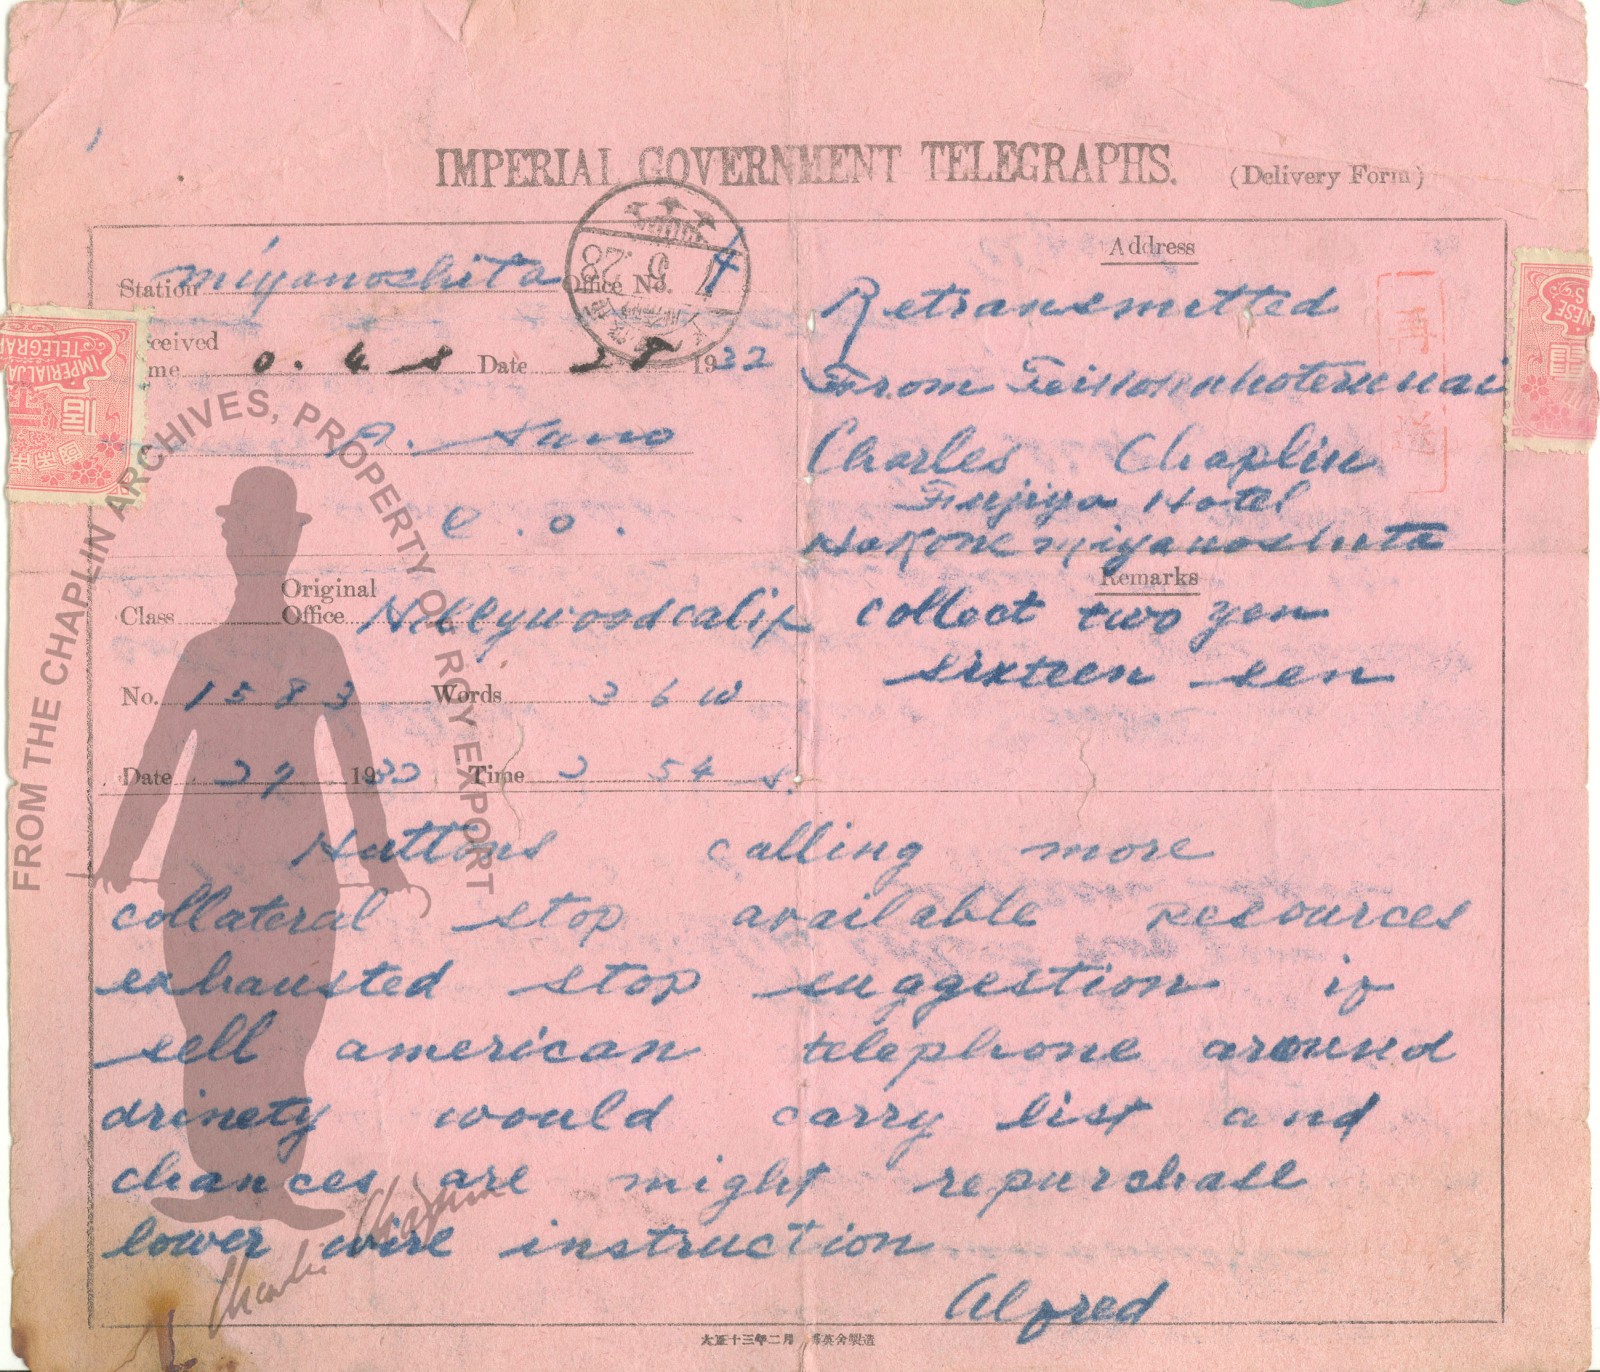 IMPERIAL GOVERNMENT TELEGRAPHS. (Delivery Form)
Station Miyanoshita Office No. 4
Received
Time 0.48 s Date 28 1932
A. Sano
C.O.
Class Original Office Hollywoodcalif
No. 1583 Words 36 W
Date 27 1932 Time 2 54 s.
Address
Retransmitted
From
Charles Chaplin
Fujiya Hotel
Hakone Miyanoshita
再
送
Remarks
collect two yen
sixteen sen
Huttons calling more
collateral stop available resources
exhausted stop suggestion if
sell american telephone around
drinety would carry list and
chances are might repurchase
lower wire instruction
Alfred
大正十三年二月
5 28
IMPERIAL JA
TELEGRA
NESE
FROM THE CHAPLIN ARCHIVES, PROPERTY OF ROY EXPORT
Charlie Chaplin